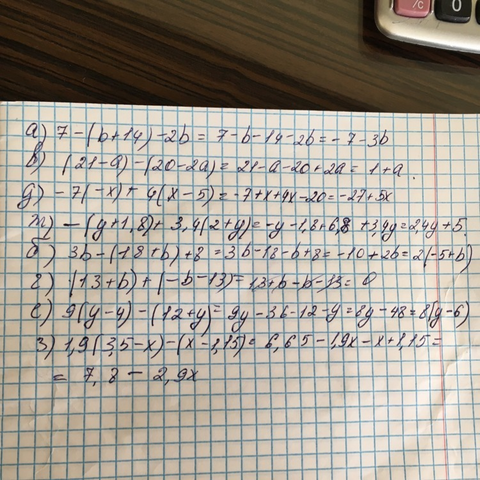 %
0
а) 7-(b+14)-2b = 7-b-14-2b=-7-3b
в) (21-a)-(20-2a)= 21-a-20+2a= 1+a.
д) -7(-x)+4(x-5)=-7+x+4x-20=-27+5x
ж) -(y+1,8)+3,4(2+y)=-y-1,8+6,8+3,4y=2,4y+5.
б) 3b-(18+b)+8=3b-18-b+8=-10+2b=2(-5+b)
г) (13+b)+(-b-13)=13+b-b-13=0
е) 9(y-4)-(12+y)=9y-36-12-y=8y-48=8(y-6)
з) 1,9(3,5-x)-(x-1,15)= 6,65-1,9x-x+1,15=
= 7,8-2,9x